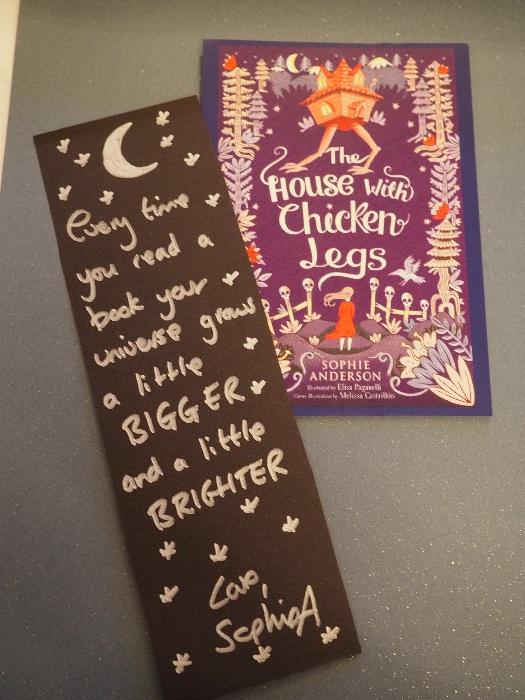 Every time
you read a
book your
universe grows
a little
BIGGER
and a little
BRIGHTER
Love,
SophieA
The
HOUSE with
Chicken
Legs
SOPHIE
ANDERSON
Illustrated by Elisa Paganelli
Cover Illustration by Melissa Castrillón